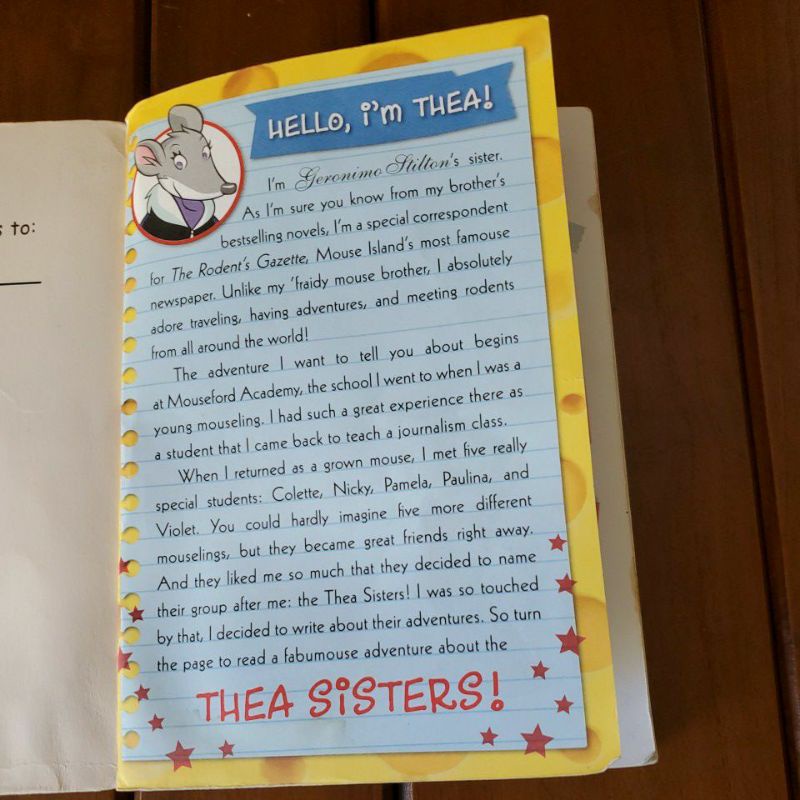 s to:
HELLO, i'm THEA!
I'm Geronimo Stilton's sister.
As I'm sure you know from my brother's
bestselling novels, I'm a special correspondent
for The Rodent's Gazette, Mouse Island's most famouse
newspaper. Unlike my 'fraidy mouse brother, I absolutely
adore traveling, having adventures, and meeting rodents
from all around the world!
The adventure I want to tell you about begins
at Mouseford Academy, the school I went to when I was a
young mouseling. I had such a great experience there as
a student that I came back to teach a journalism class.
When I returned as a grown mouse, I met five really
special students: Colette, Nicky, Pamela, Paulina, and
Violet. You could hardly imagine five more different
mouselings, but they became great friends right away.
And they liked me so much that they decided to name
their group after me: the Thea Sisters! I was so touched
by that, I decided to write about their adventures. So turn
the page to read a fabumouse adventure about the
THEA SiSTERS!